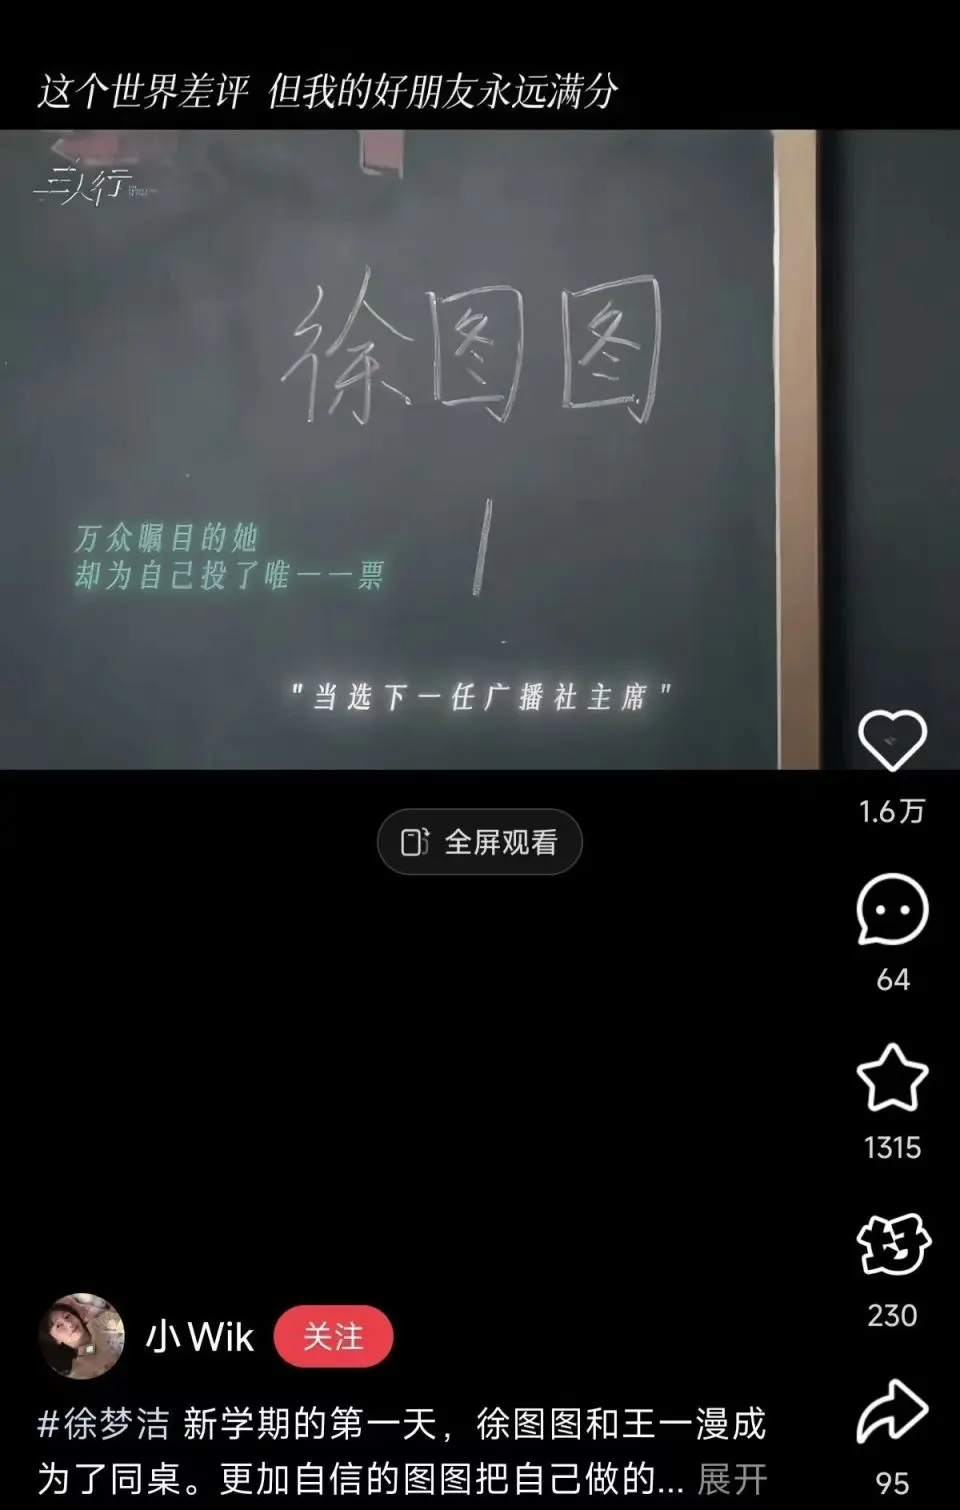 这个世界差评 但我的好朋友永远满分
三人行
徐图图
万众瞩目的她
却为自己投了唯一一票
"当选下一任广播社主席"
1.6万
全屏观看
64
1315
好
230
小Wik 关注
#徐梦洁 新学期的第一天，徐图图和王一漫成
为了同桌。更加自信的图图把自己做的... 展开
95